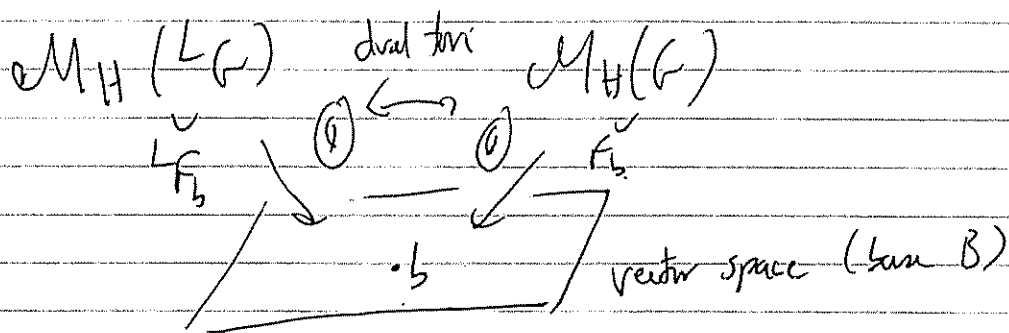 ℳ_H(ᴸG) dual tori ℳ_H(G)
ᴸF_b F_b
·b
vector space (base B)